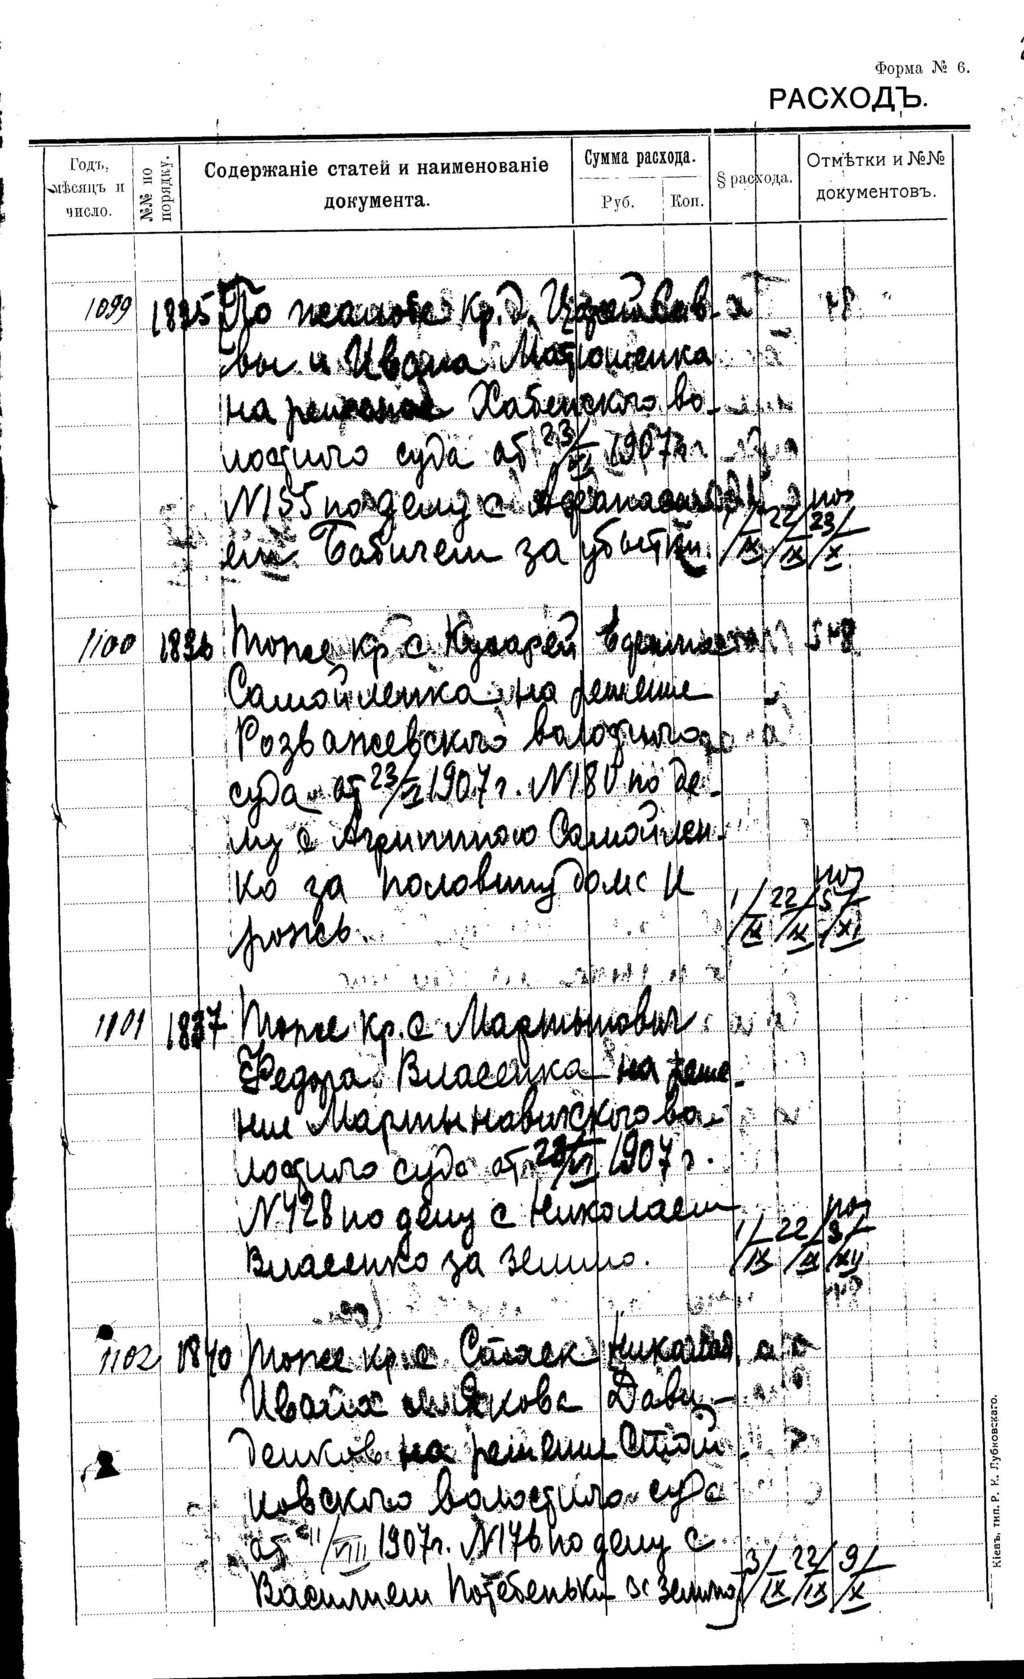 Форма № 6.
РАСХОДЪ.
Годъ, мѣсяцъ и число.
№№ по порядку.
Содержаніе статей и наименованіе документа.
Сумма расхода.
Руб. Коп.
§ расхода.
Отмѣтки и №№ документовъ.
1099 1835 По жалобе кр. д.
вы и Ивана Матюшенка
на решение Хабенского во-
лостного суда от 23/VI 1907 г.
N155 по делу с Афанаси-
ем Бабичем за убытки. 1/IX 22/IX 23/X
1100 1836 Тоже кр. с. Кухарей
Самойленка на решение
Розважевского волостного
суда от 23/VI 1907 г. N180 по де-
лу с Агрипиною Самойлен-
ко за половину дома и 1/IX 22/IX 5/XI
рожь.
1101 1837 Тоже кр. с. Мартынович
Федора Власенка на реше-
ние Мартыновичского во-
лостного суда от 1907 г.
N428 по делу с Николаем
Власенко за землю. 1/IX 22/IX 3/XII
1102 1840 Тоже кр. с. Николая
Ивана и Якова Дави-
денков на решение
новского волостного суда
от 11/VIII 1907 г. N176 по делу с
Василием Потебенько за землю 3/IX 22/IX 9/X
Кіевъ, тип. Р. К. Лубковскаго.